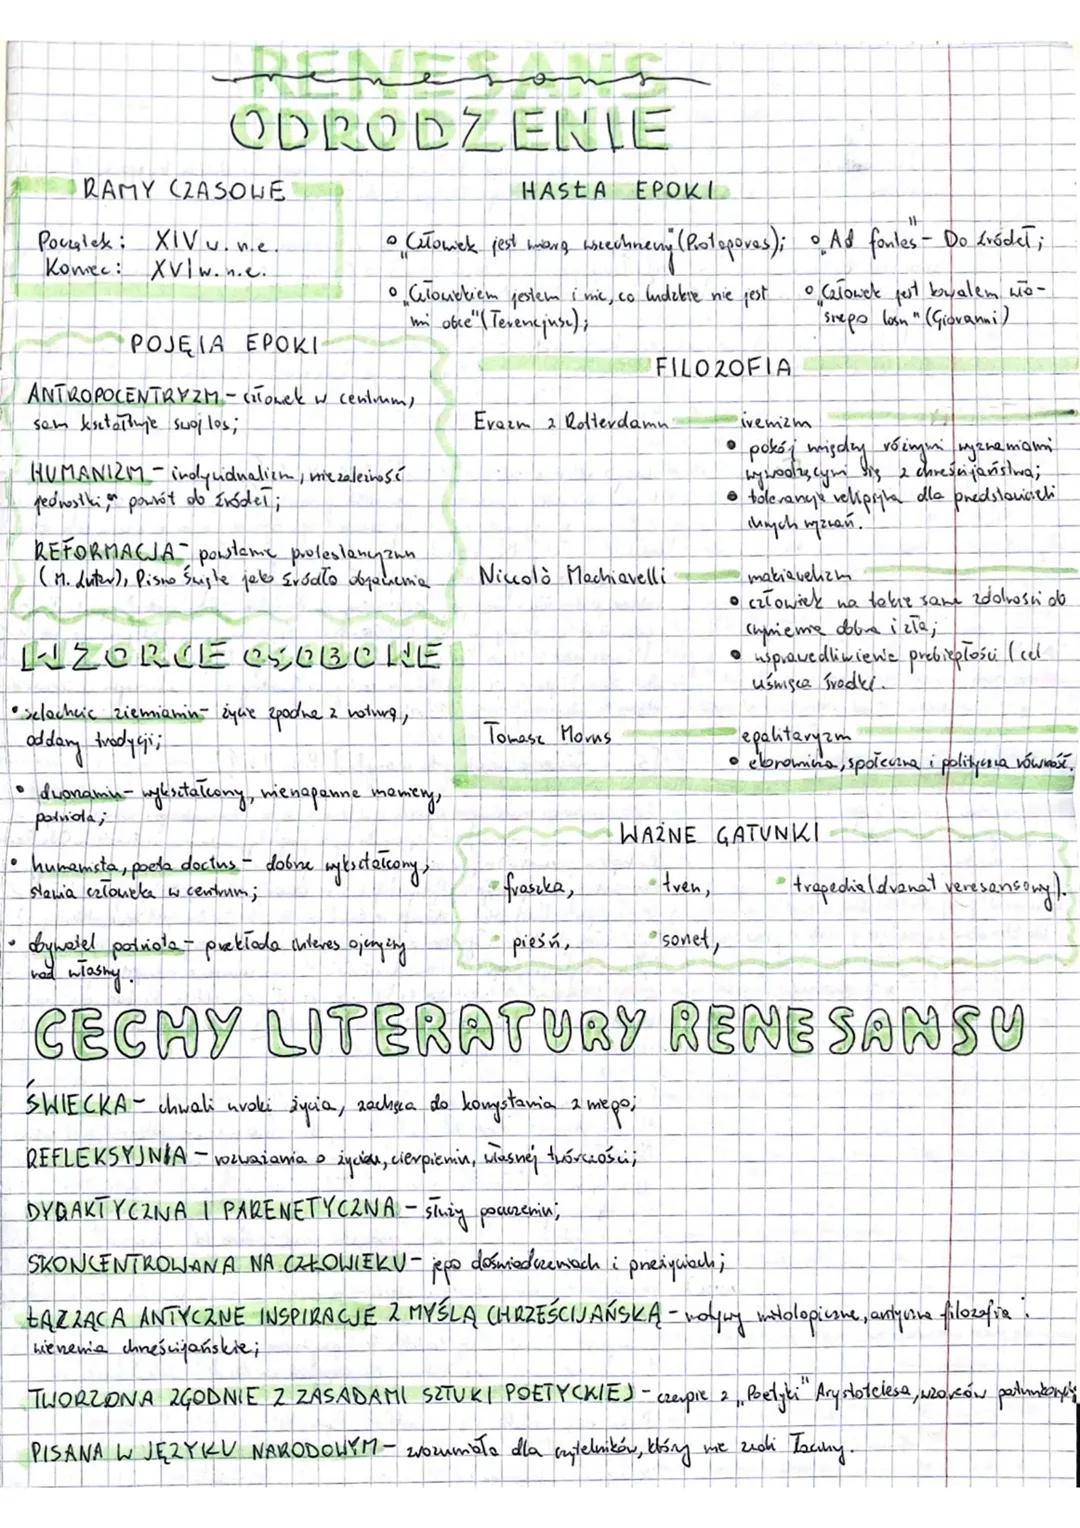 RENESANS
renesans
ODRODZENIE
RAMY CZASOWE
Początek: XIV w. n.e.
Koniec: XVI w. n.e.
HASŁA EPOKI
"Człowiek jest miarą wszechrzeczy" (Protagoras);
"Człowiekiem jestem i nic, co ludzkie nie jest
mi obce" (Terencjusz);
"Ad fontes" - Do źródeł;
"Człowiek jest kowalem wła-
snego losu" (Giovanni)
POJĘCIA EPOKI
ANTROPOCENTRYZM - człowiek w centrum,
sam kształtuje swój los;
HUMANIZM - indywidualizm, niezależność
jednostki, powrót do źródeł;
REFORMACJA - powstanie protestantyzmu
(M. Luter), Pismo Święte jako źródło objawienia
FILOZOFIA
Erazm z Rotterdamu - irenizm
• pokój między różnymi wyznaniami
wywodzącymi się z chrześcijaństwa;
• tolerancja religijna dla przedstawicieli
innych wyznań.
Niccolò Machiavelli - makiawelizm
• człowiek ma takie same zdolności do
czynienia dobra i zła;
• usprawiedliwienie przebiegłości (cel
uświęca środki.
Tomasz Morus - egalitaryzm
• ekonomiczna, społeczna i polityczna równość.
WZORCE OSOBOWE
• szlachcic ziemianin - życie zgodne z naturą,
oddany tradycji;
• dworzanin - wykształcony, nienaganne maniery,
patriota;
• humanista, poeta doctus - dobrze wykształcony,
stawia człowieka w centrum;
• obywatel patriota - przekłada interes ojczyzny
nad własny.
WAŻNE GATUNKI
• fraszka, • tren, • tragedia (dramat renesansowy).
• pieśń, • sonet,
CECHY LITERATURY RENESANSU
ŚWIECKA - chwali uroki życia, zachęca do korzystania z niego;
REFLEKSYJNA - rozważania o życiu, cierpieniu, własnej twórczości;
DYDAKTYCZNA I PARENETYCZNA - służy pouczeniu;
SKONCENTROWANA NA CZŁOWIEKU - jego doświadczeniach i przeżyciach;
ŁĄCZĄCA ANTYCZNE INSPIRACJE Z MYŚLĄ CHRZEŚCIJAŃSKĄ - motywy mitologiczne, antyczna filozofia i
wierzenia chrześcijańskie;
TWORZONA ZGODNIE Z ZASADAMI SZTUKI POETYCKIEJ - czerpie z "Poetyki" Arystotelesa, wzorców
PISANA W JĘZYKU NARODOWYM - zrozumiała dla czytelników, którzy nie znali łaciny.